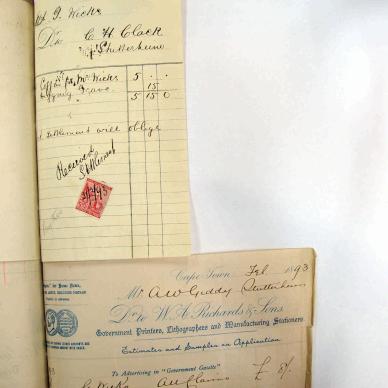 J. Wicks
Dr to C H Clack
Stutterheim
Coffin for Mr Wicks 5 . .
Digging Grave 15
5 15 0
A settlement will oblige
Received
Settlement
Cape Town Feb 1893
Mr. A W Giddy Stutterheim
Dr. to W. A. Richards & Sons,
Government Printers, Lithographers and Manufacturing Stationers
Estimates and Samples on Application
To Advertising in "Government Gazette"
Wicks All Claims £ 8/-